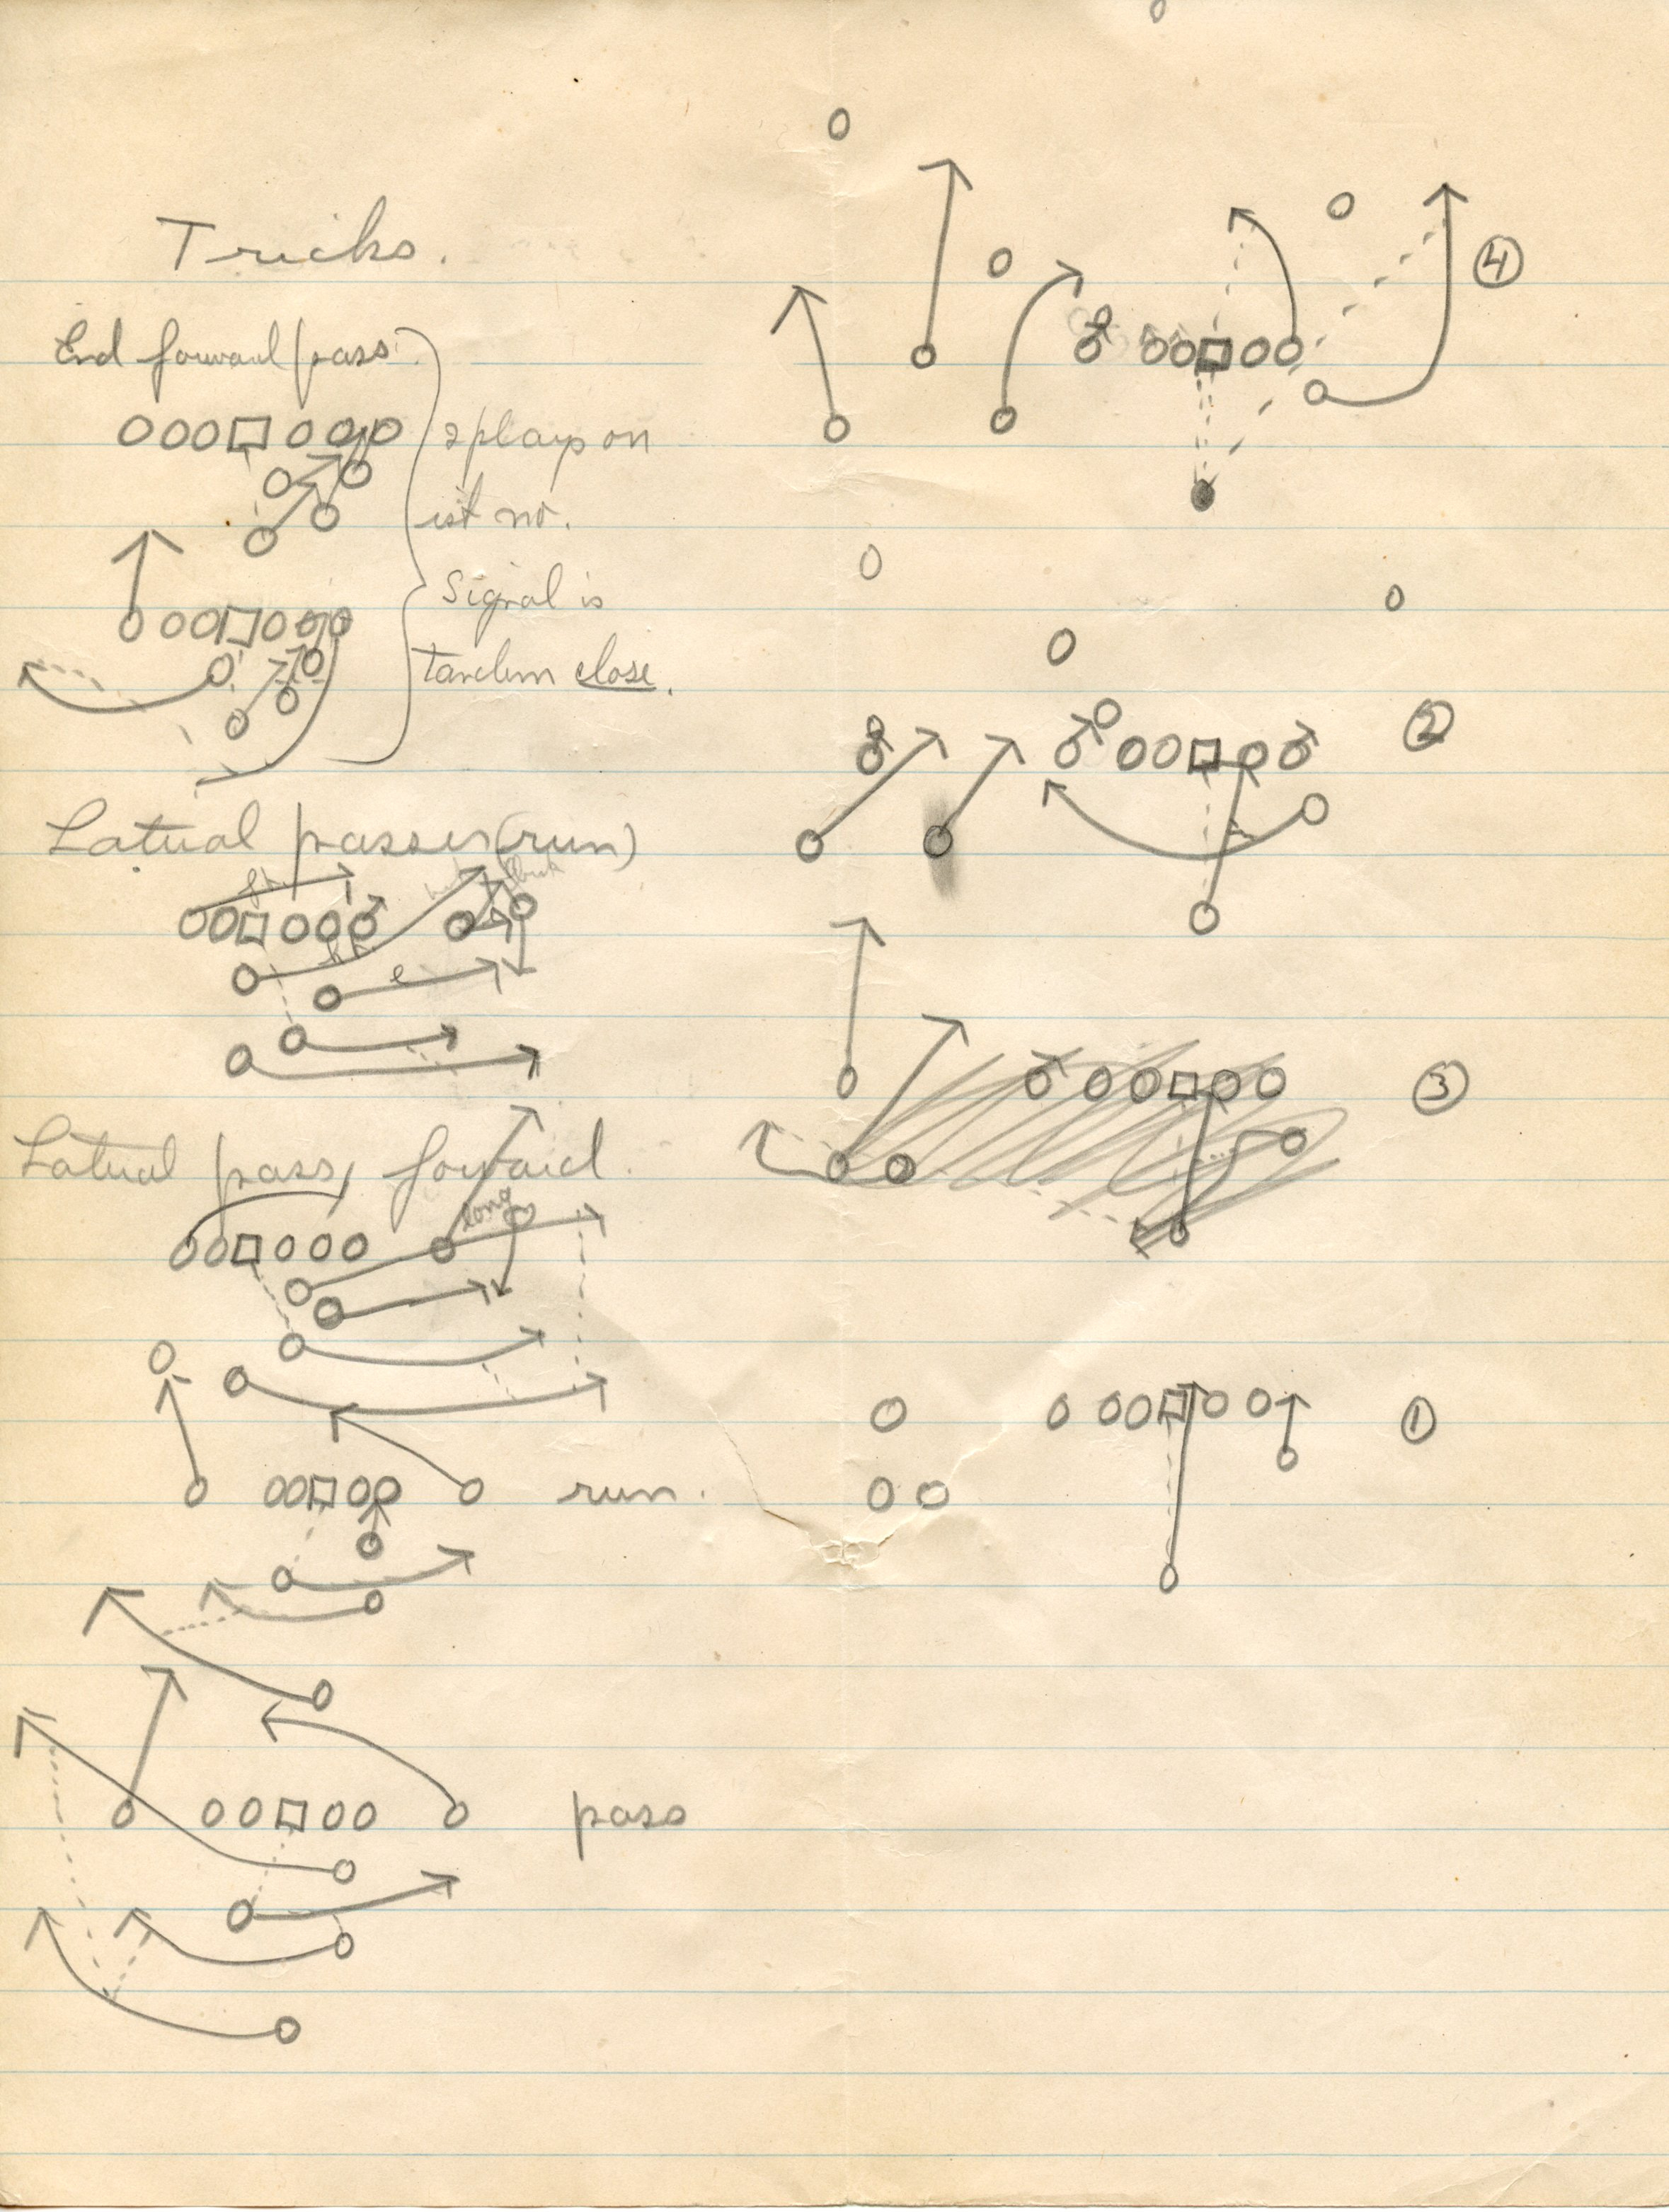 Tricks.
End forward pass.
2 plays on
ist no.
Signal is
tandem close.
Latual passes (run)
e
Latual pass, forward.
long
run.
pass
4
2
3
1